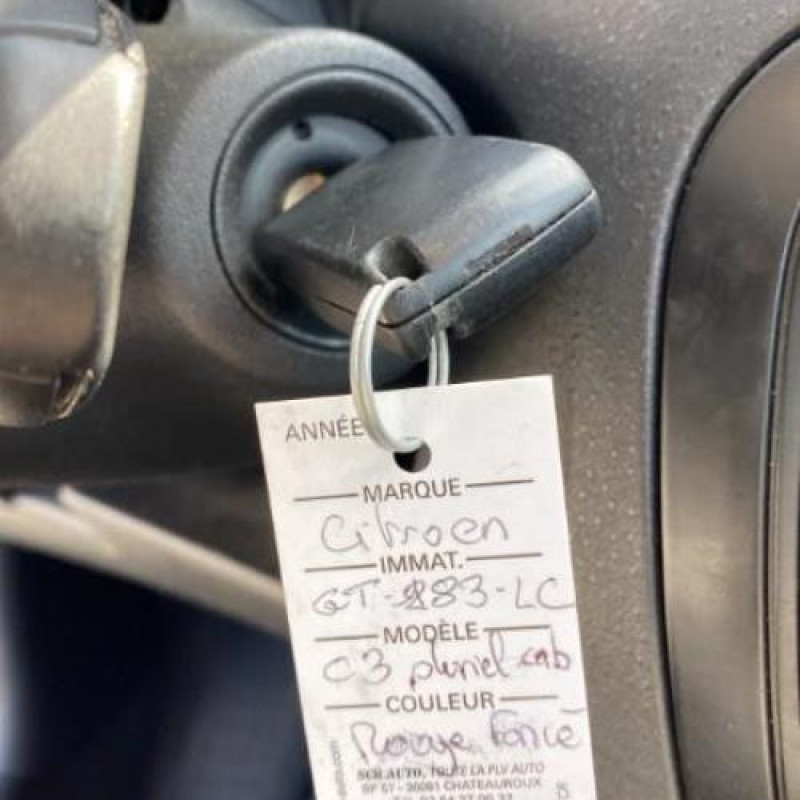 ANNÉE
MARQUE
Citroen
IMMAT.
GT-883-LC
MODÈLE
C3 pluriel cab
COULEUR
Rouge foncé
SCB AUTO, TOUTE LA PLV AUTO
BP 57 - 36001 CHATEAUROUX